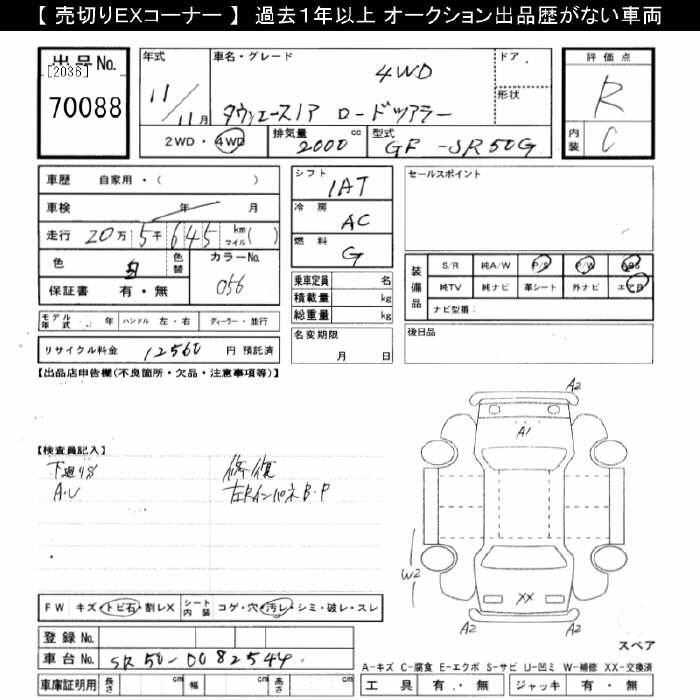 【 売切りEXコーナー 】 過去1年以上 オークション出品歴がない車両
出品No.
[2036]
70088
年式
11/11月
車名・グレード
4WD
タウンエースノア ロードツアラー
ドア
形状
評価点
R
内装
C
2WD・4WD
排気量 2000 cc
型式 GF-SR50G
車歴 自家用・( )
車検 年 月
走行 20万 5千 6 4 5 km マイル( )
色 白
色替
カラーNo. 056
保証書 有・無
シフト IAT
冷房 AC
燃料 G
セールスポイント
乗車定員 名
積載量 kg
総重量 kg
装備品
S/R 純A/W P/S P/W ABS
純TV 純ナビ 革シート 外ナビ エアB
ナビ型番:
モデル年式 年 ハンドル 左・右 ディーラー・並行
リサイクル料金 12560 円 預託済
名変期限
月 日
後日品
【出品店申告欄(不良箇所・欠品・注意事項等)】
A2
A1
【検査員記入】
下廻りS
A.U
修復
左Rインパネ B・P
W2
XX
A2
A2
FW キズ・トビ石・割レX
シート内装 コゲ・穴・汚レ・シミ・破レ・スレ
登録No.
車台No. SR50-0082544
車庫証明用 長さ cm 幅 cm 高さ cm
スペア
A-キズ C-腐食 E-エクボ S-サビ U-凹ミ W-補修 XX-交換済
工具 有・無 ジャッキ 有・無